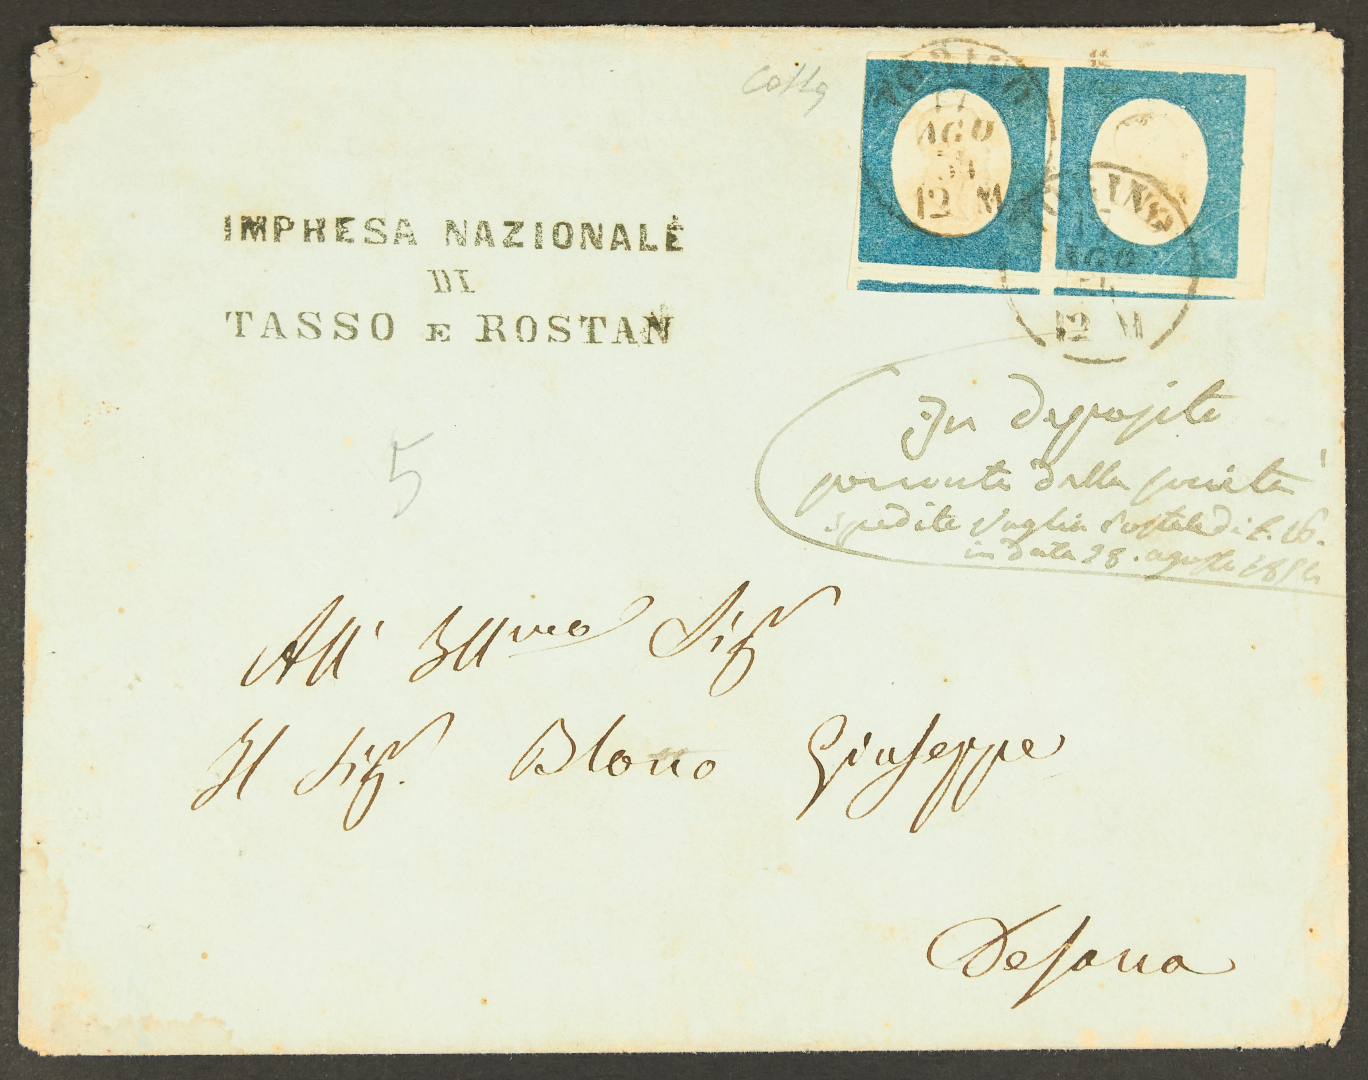 Colla
TORINO
17
AGO
54
12 M
TORINO
17
AGO
54
12 M
IMPRESA NAZIONALE
DI
TASSO E ROSTAN
In deposito
dalla società
spedite Vaglia Postale di £. 16.
in data 28. agosto 1854
5
All' Illmo Sigr
Il Sigr. Blono Giuseppe
Desana